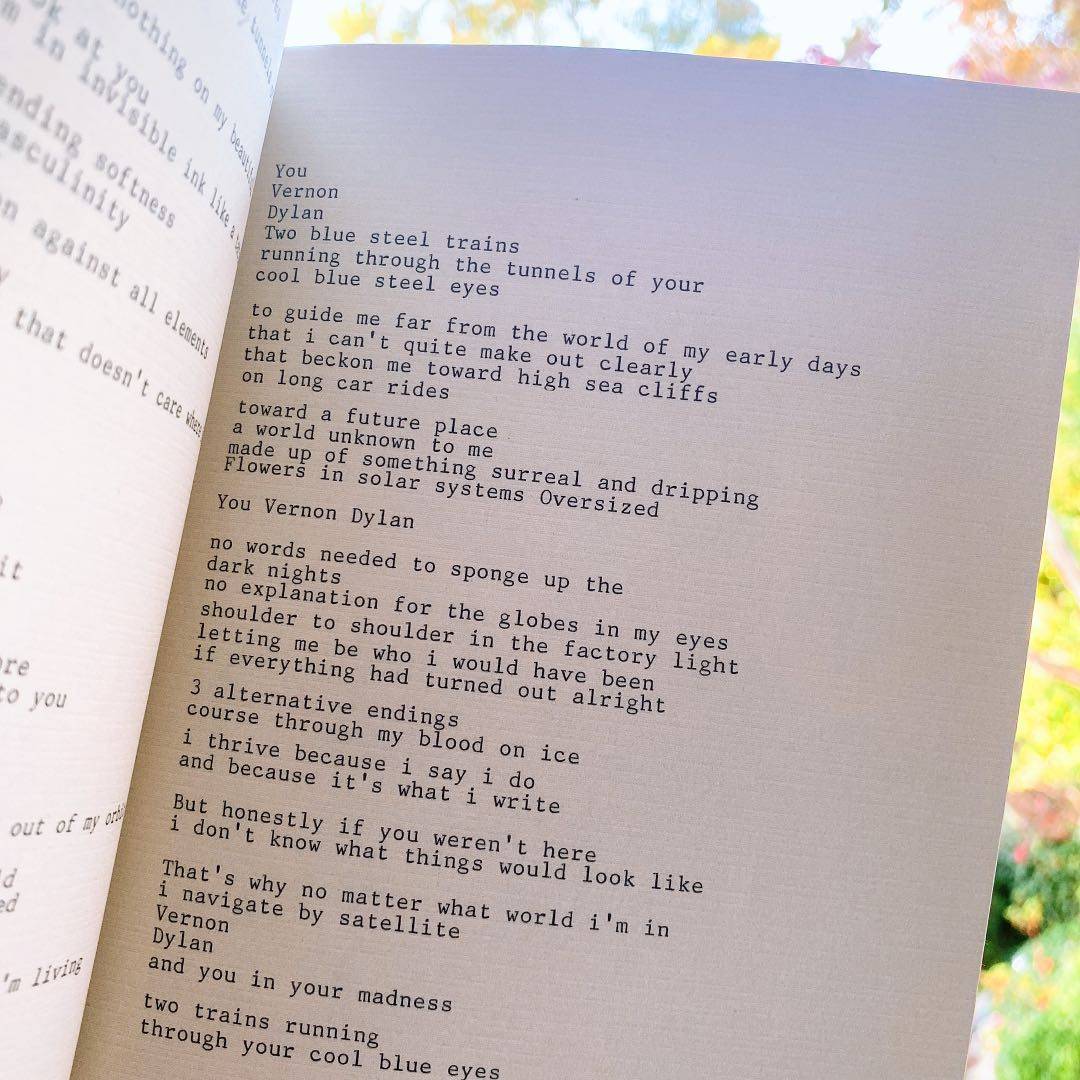 nothing on my
at you
in invisible ink like a
ending softness
against all elements
that doesn't care where
it
to you
out of my
'm living
You
Vernon
Dylan
Two blue steel trains
running through the tunnels of your
cool blue steel eyes
to guide me far from the world of my early days
that i can't quite make out clearly
that beckon me toward high sea cliffs
on long car rides
toward a future place
a world unknown to me
made up of something surreal and dripping
Flowers in solar systems Oversized
You Vernon Dylan
no words needed to sponge up the
dark nights
no explanation for the globes in my eyes
shoulder to shoulder in the factory light
letting me be who i would have been
if everything had turned out alright
3 alternative endings
course through my blood on ice
i thrive because i say i do
and because it's what i write
But honestly if you weren't here
i don't know what things would look like
That's why no matter what world i'm in
i navigate by satellite
Vernon
Dylan
and you in your madness
two trains running
through your cool blue eyes